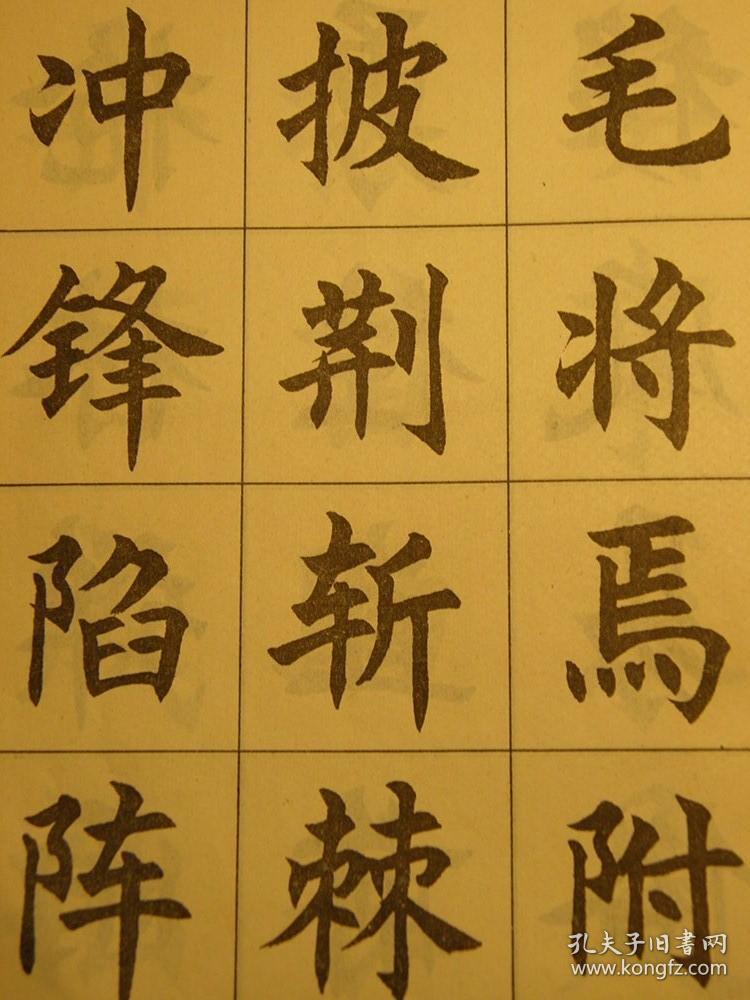 毛将焉附
披荆斩棘
冲锋陷阵
孔夫子旧書网
www.kongfz.com